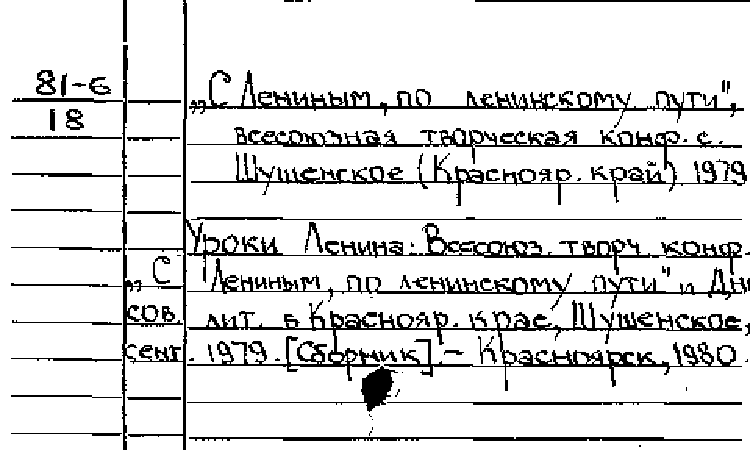 81-6
18
„С Лениным, по ленинскому пути",
всесоюзная творческая конф. с.
Шушенское (Краснояр. край) 1979
Уроки Ленина: Всесоюз. творч. конф.
„С Лениным, по ленинскому пути" и Дни
сов. лит. в Краснояр. крае, Шушенское,
сент. 1979. [Сборник] - Красноярск, 1980.